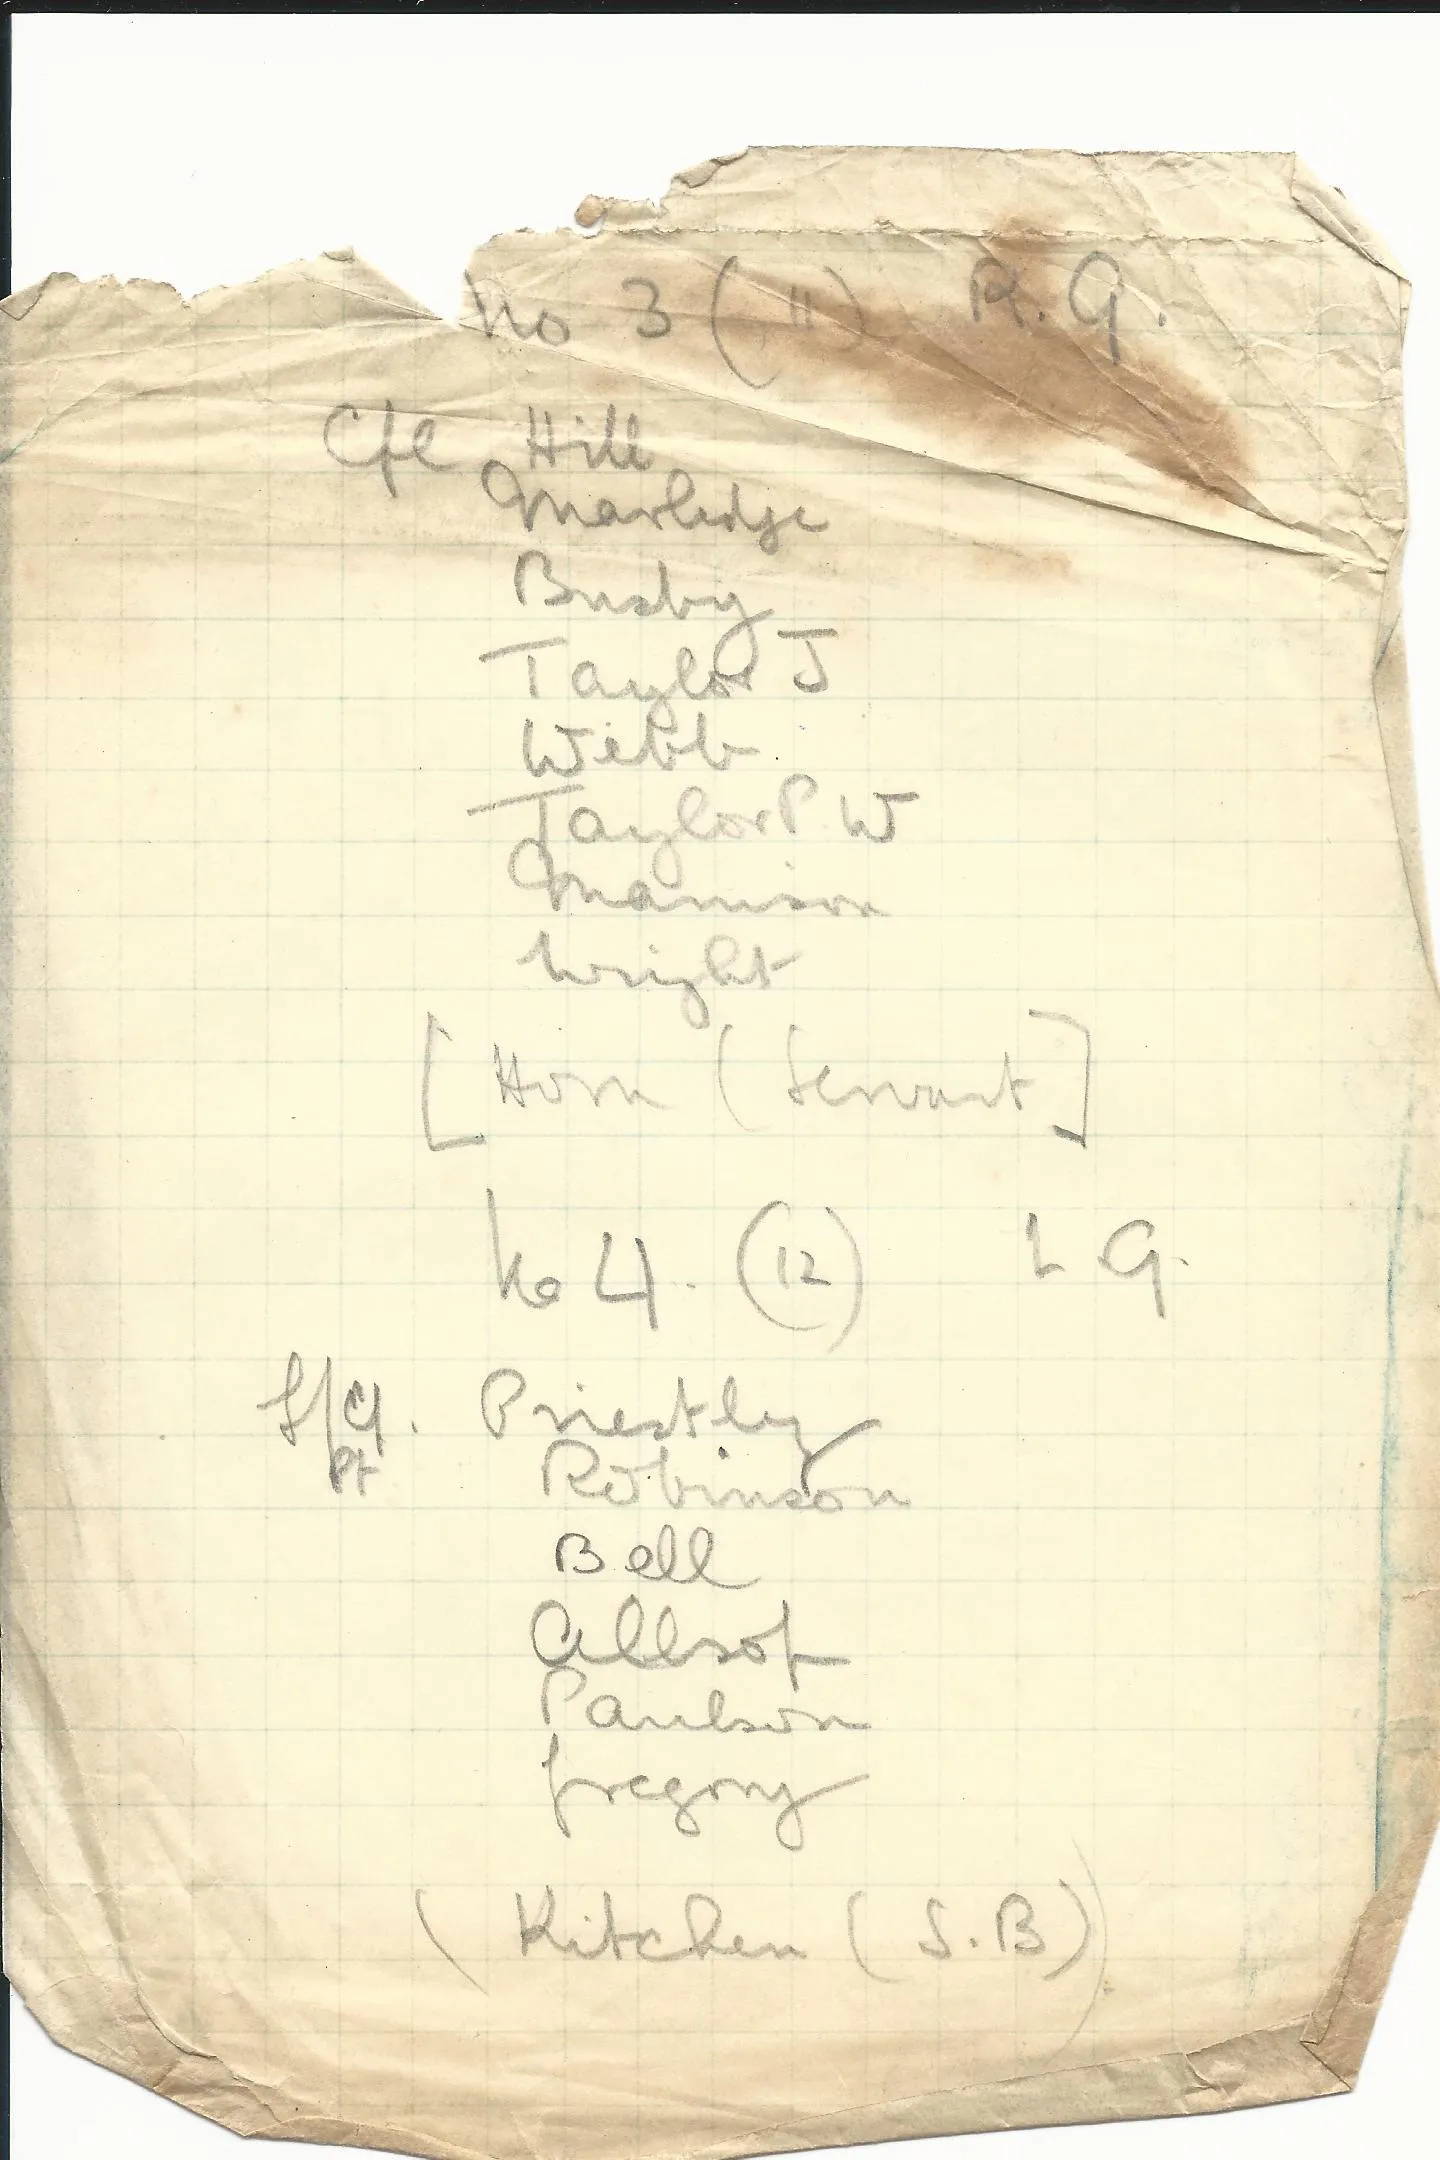 No 3 (11) R.G.
Cpl Hill
Marledge
Busby
Taylor J
Webb
Taylor P. W
Manison
Wright
[Horn (Servant]
No 4. (12) L G.
L/Cpl. Priestley
Pt Robinson
Bell
Allsop
Paulson
Gregory
(Kitchen (S.B))